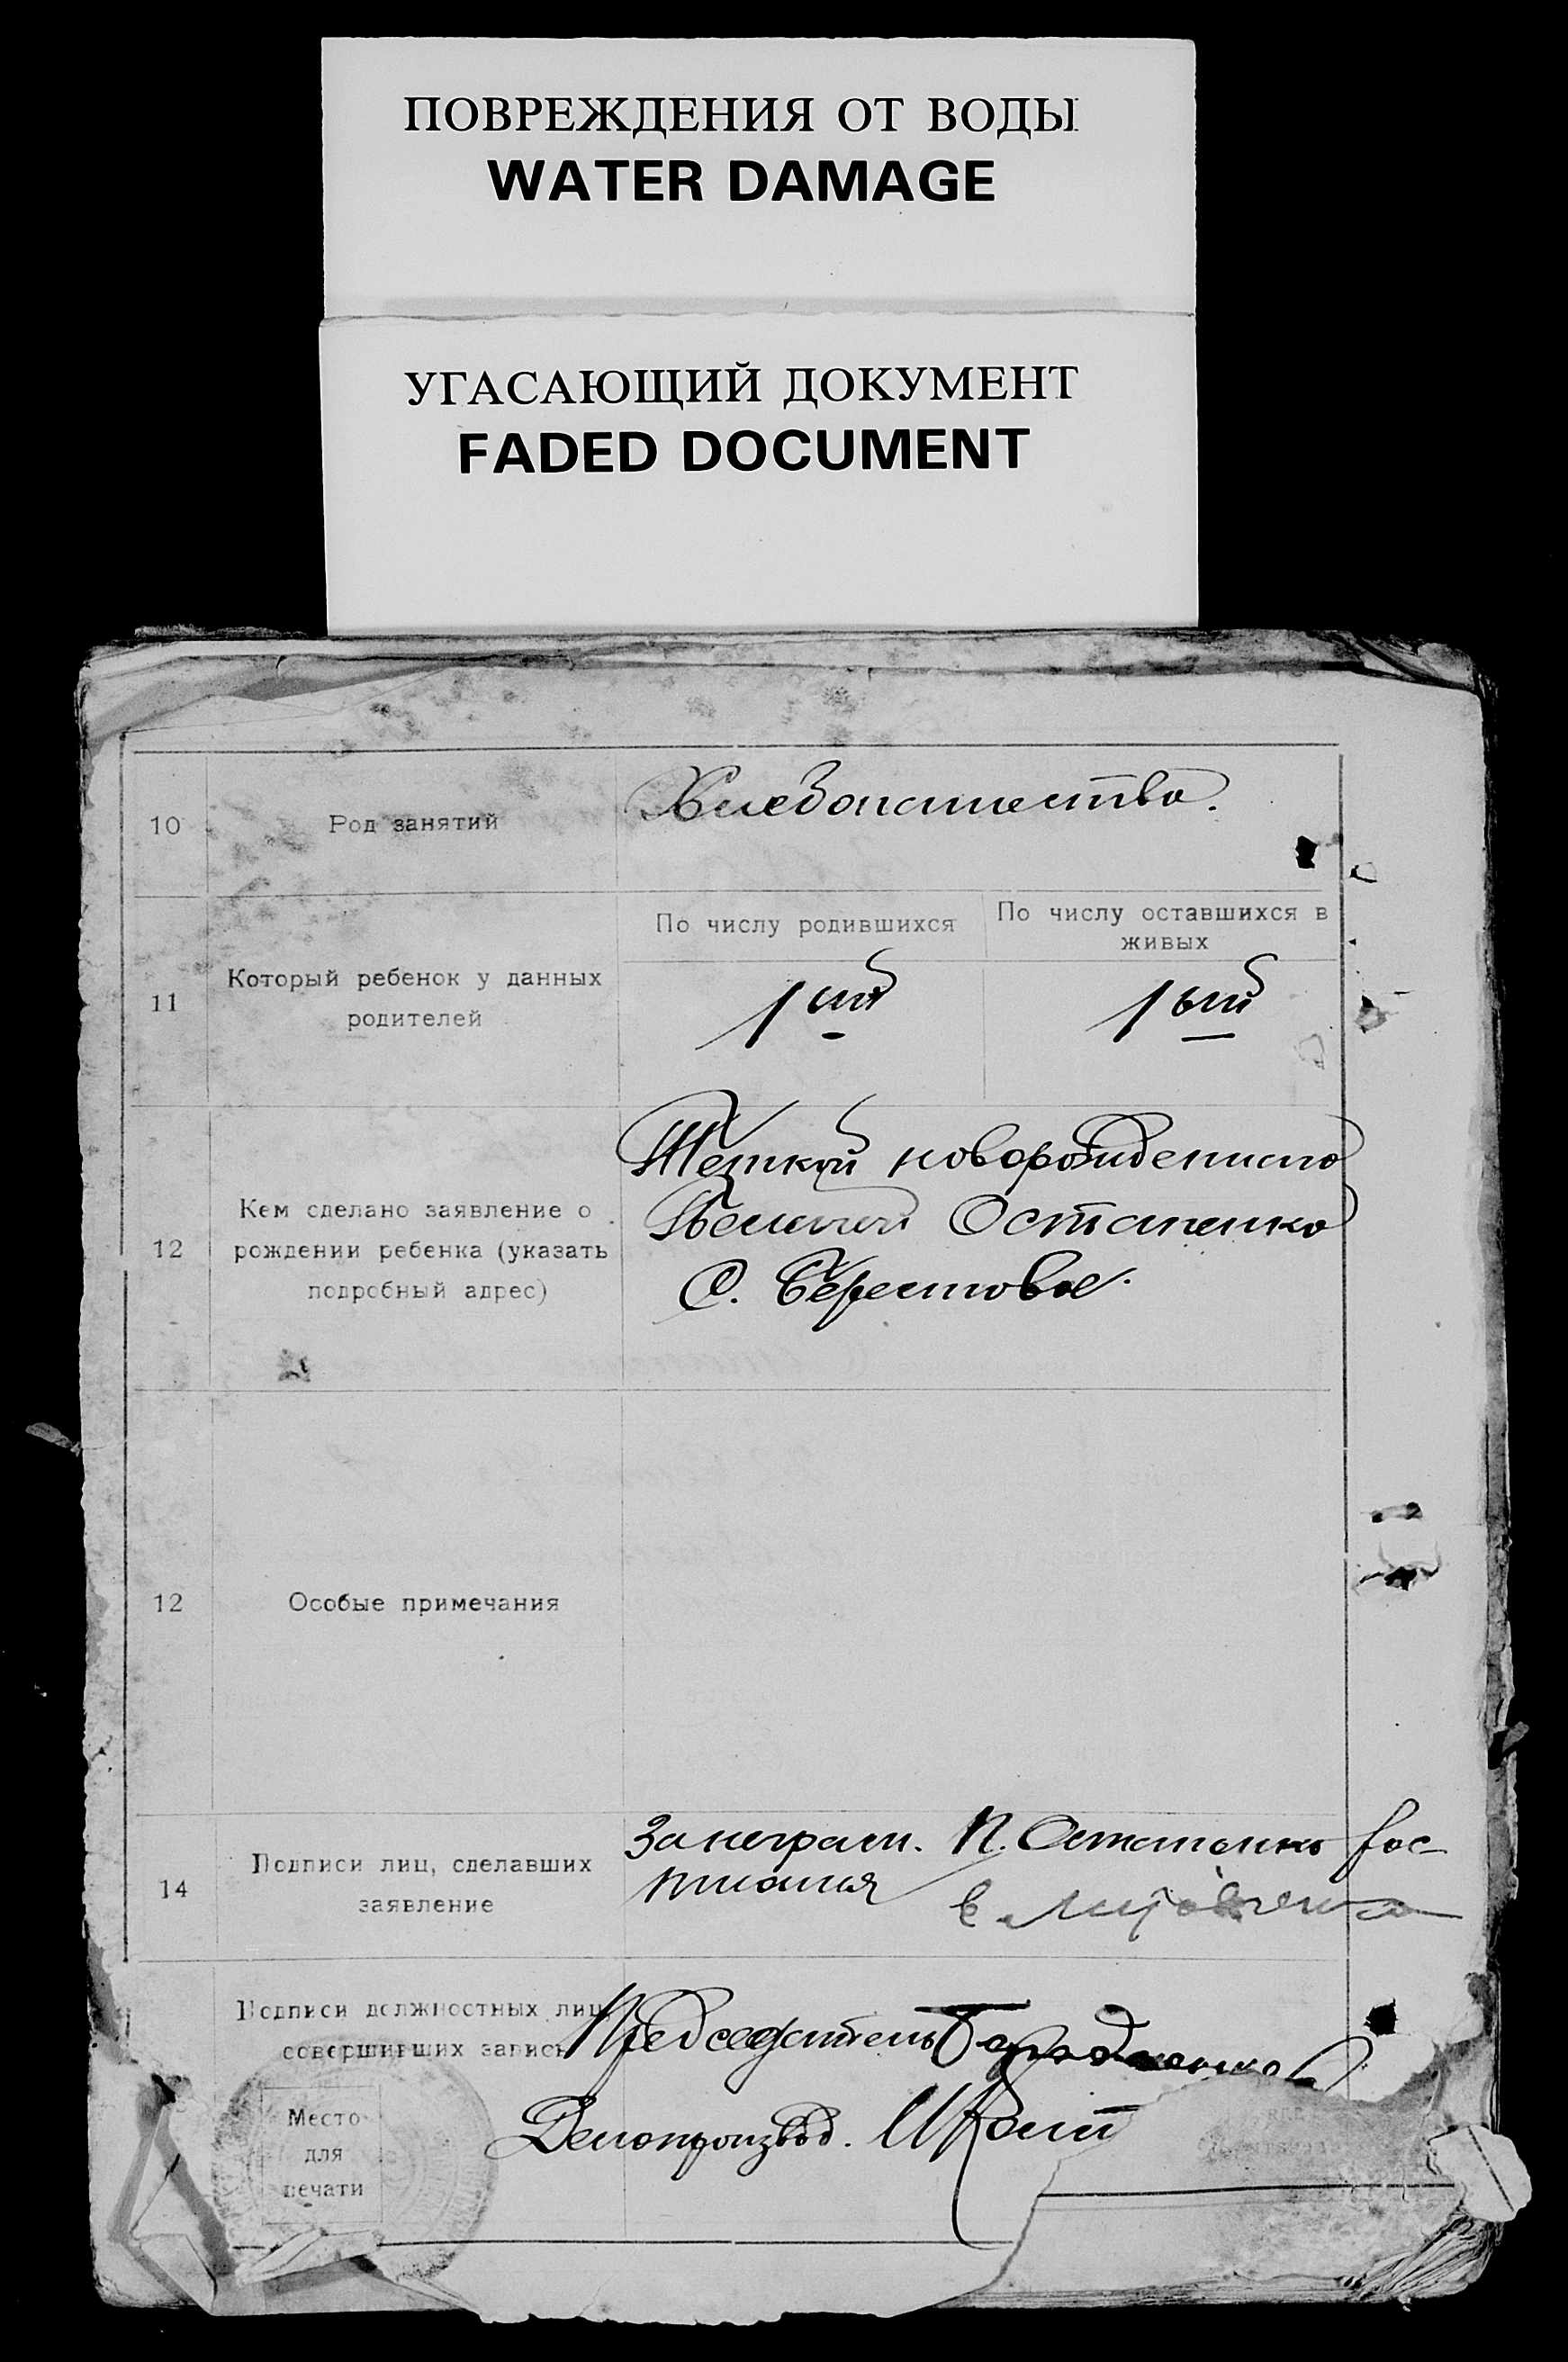 ПОВРЕЖДЕНИЯ ОТ ВОДЫ
WATER DAMAGE
УГАСАЮЩИЙ ДОКУМЕНТ
FADED DOCUMENT
10
Род занятий
Хлебопашество.
11
Который ребенок у данных
родителей
По числу родившихся
По числу оставшихся в
живых
1ый
1ый
12
Кем сделано заявление о
рождении ребенка (указать
подробный адрес)
Теткой новорожденного
Остапенко
С. Берестовое.
12
Особые примечания
14
Подписи лиц, сделавших
заявление
За неграм. П. Остапенко рос-
писался
Подписи должностных лиц,
совершивших запись
Председатель
Делопроизвод.
Место
для
печати